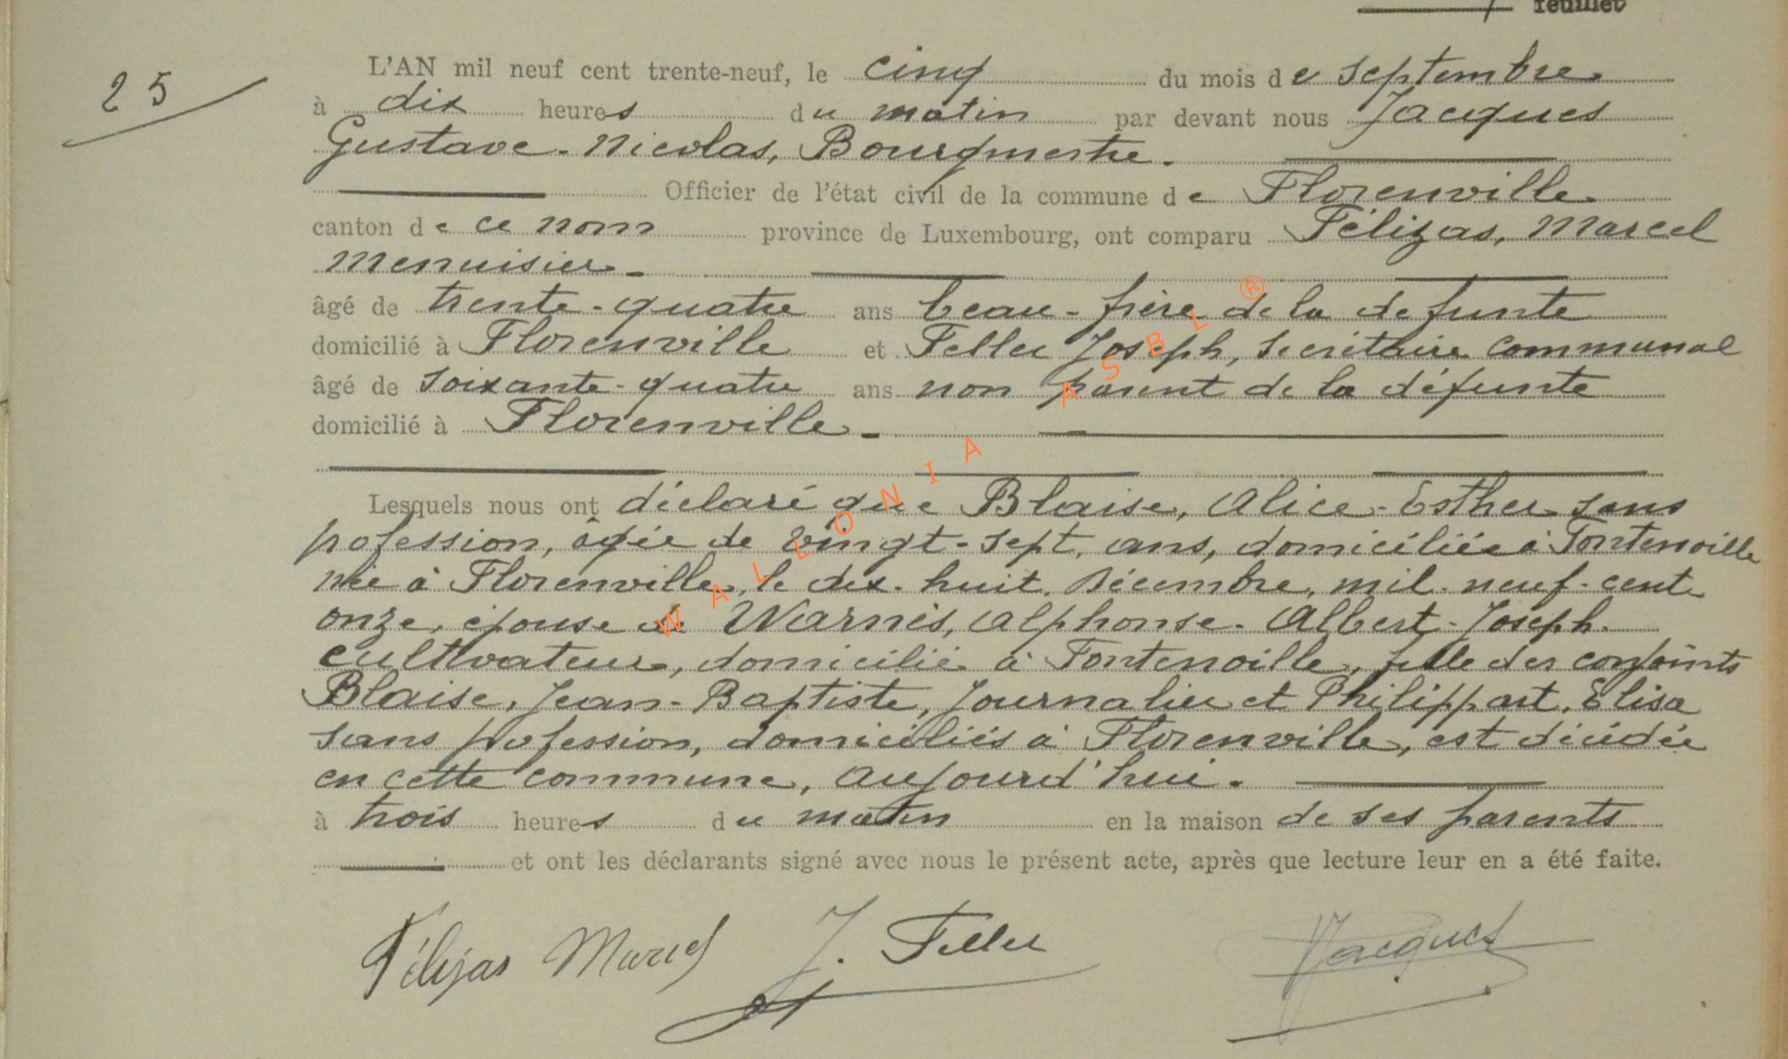 feuillet
25
L'AN mil neuf cent trente-neuf, le cinq du mois de septembre
à dix heures du matin par devant nous Jacques
Gustave-Nicolas, Bourgmestre.
Officier de l'état civil de la commune de Florenville
canton de ce nom province de Luxembourg, ont comparu Félizas, Marcel
menuisier
âgé de trente-quatre ans beau-frère de la defunte
domicilié à Florenville et Feller Joseph, secrétaire communal
âgé de soixante-quatre ans non parent de la défunte
domicilié à Florenville
Lesquels nous ont déclaré que Blaise, Alice-Esther sans
profession, âgée de vingt-sept ans, domiciliée à Fontenoille
née à Florenville, le dix-huit Décembre, mil-neuf-cent
onze, épouse de Warnis, Alphonse-Albert-Joseph
cultivateur, domicilié à Fontenoille, fille des conjoints
Blaise, Jean-Baptiste, Journalier et Philippart, Elisa
sans profession, domiciliés à Florenville, est décédée
en cette commune, aujourd'hui.
à trois heures du matin en la maison de ses parents
et ont les déclarants signé avec nous le présent acte, après que lecture leur en a été faite.
Félizas Marcel J. Feller Jacques
WALLONIA ASBL ®